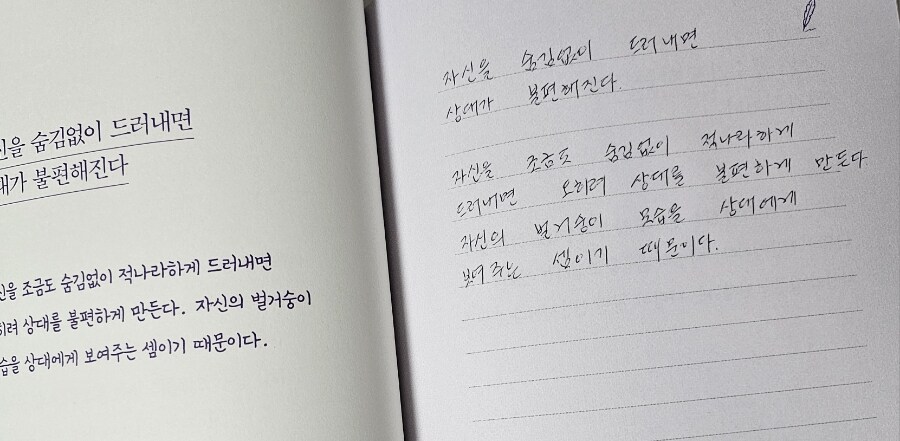 신을 숨김없이 드러내면
대가 불편해진다
신을 조금도 숨김없이 적나라하게 드러내면
히려 상대를 불편하게 만든다. 자신의 벌거숭이
습을 상대에게 보여주는 셈이기 때문이다.
자신을 숨김없이 드러내면
상대가 불편해진다.
자신을 조금도 숨김없이 적나라하게
드러내면 오히려 상대를 불편하게 만든다
자신의 벌거숭이 모습을 상대에게
보여주는 셈이기 때문이다.